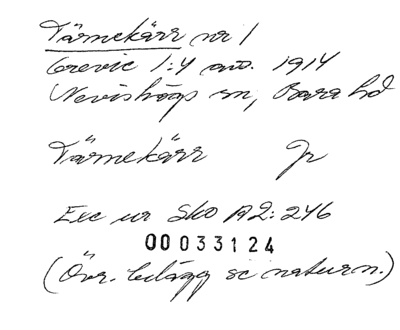 Tärnekärr nr 1
Grevie 1:4 avs. 1914
Nevishögs sn, Bara hd
Tärnekärr Jr
Exc ur Sko A2: 246
00033124
(Övr. belägg se naturn.)